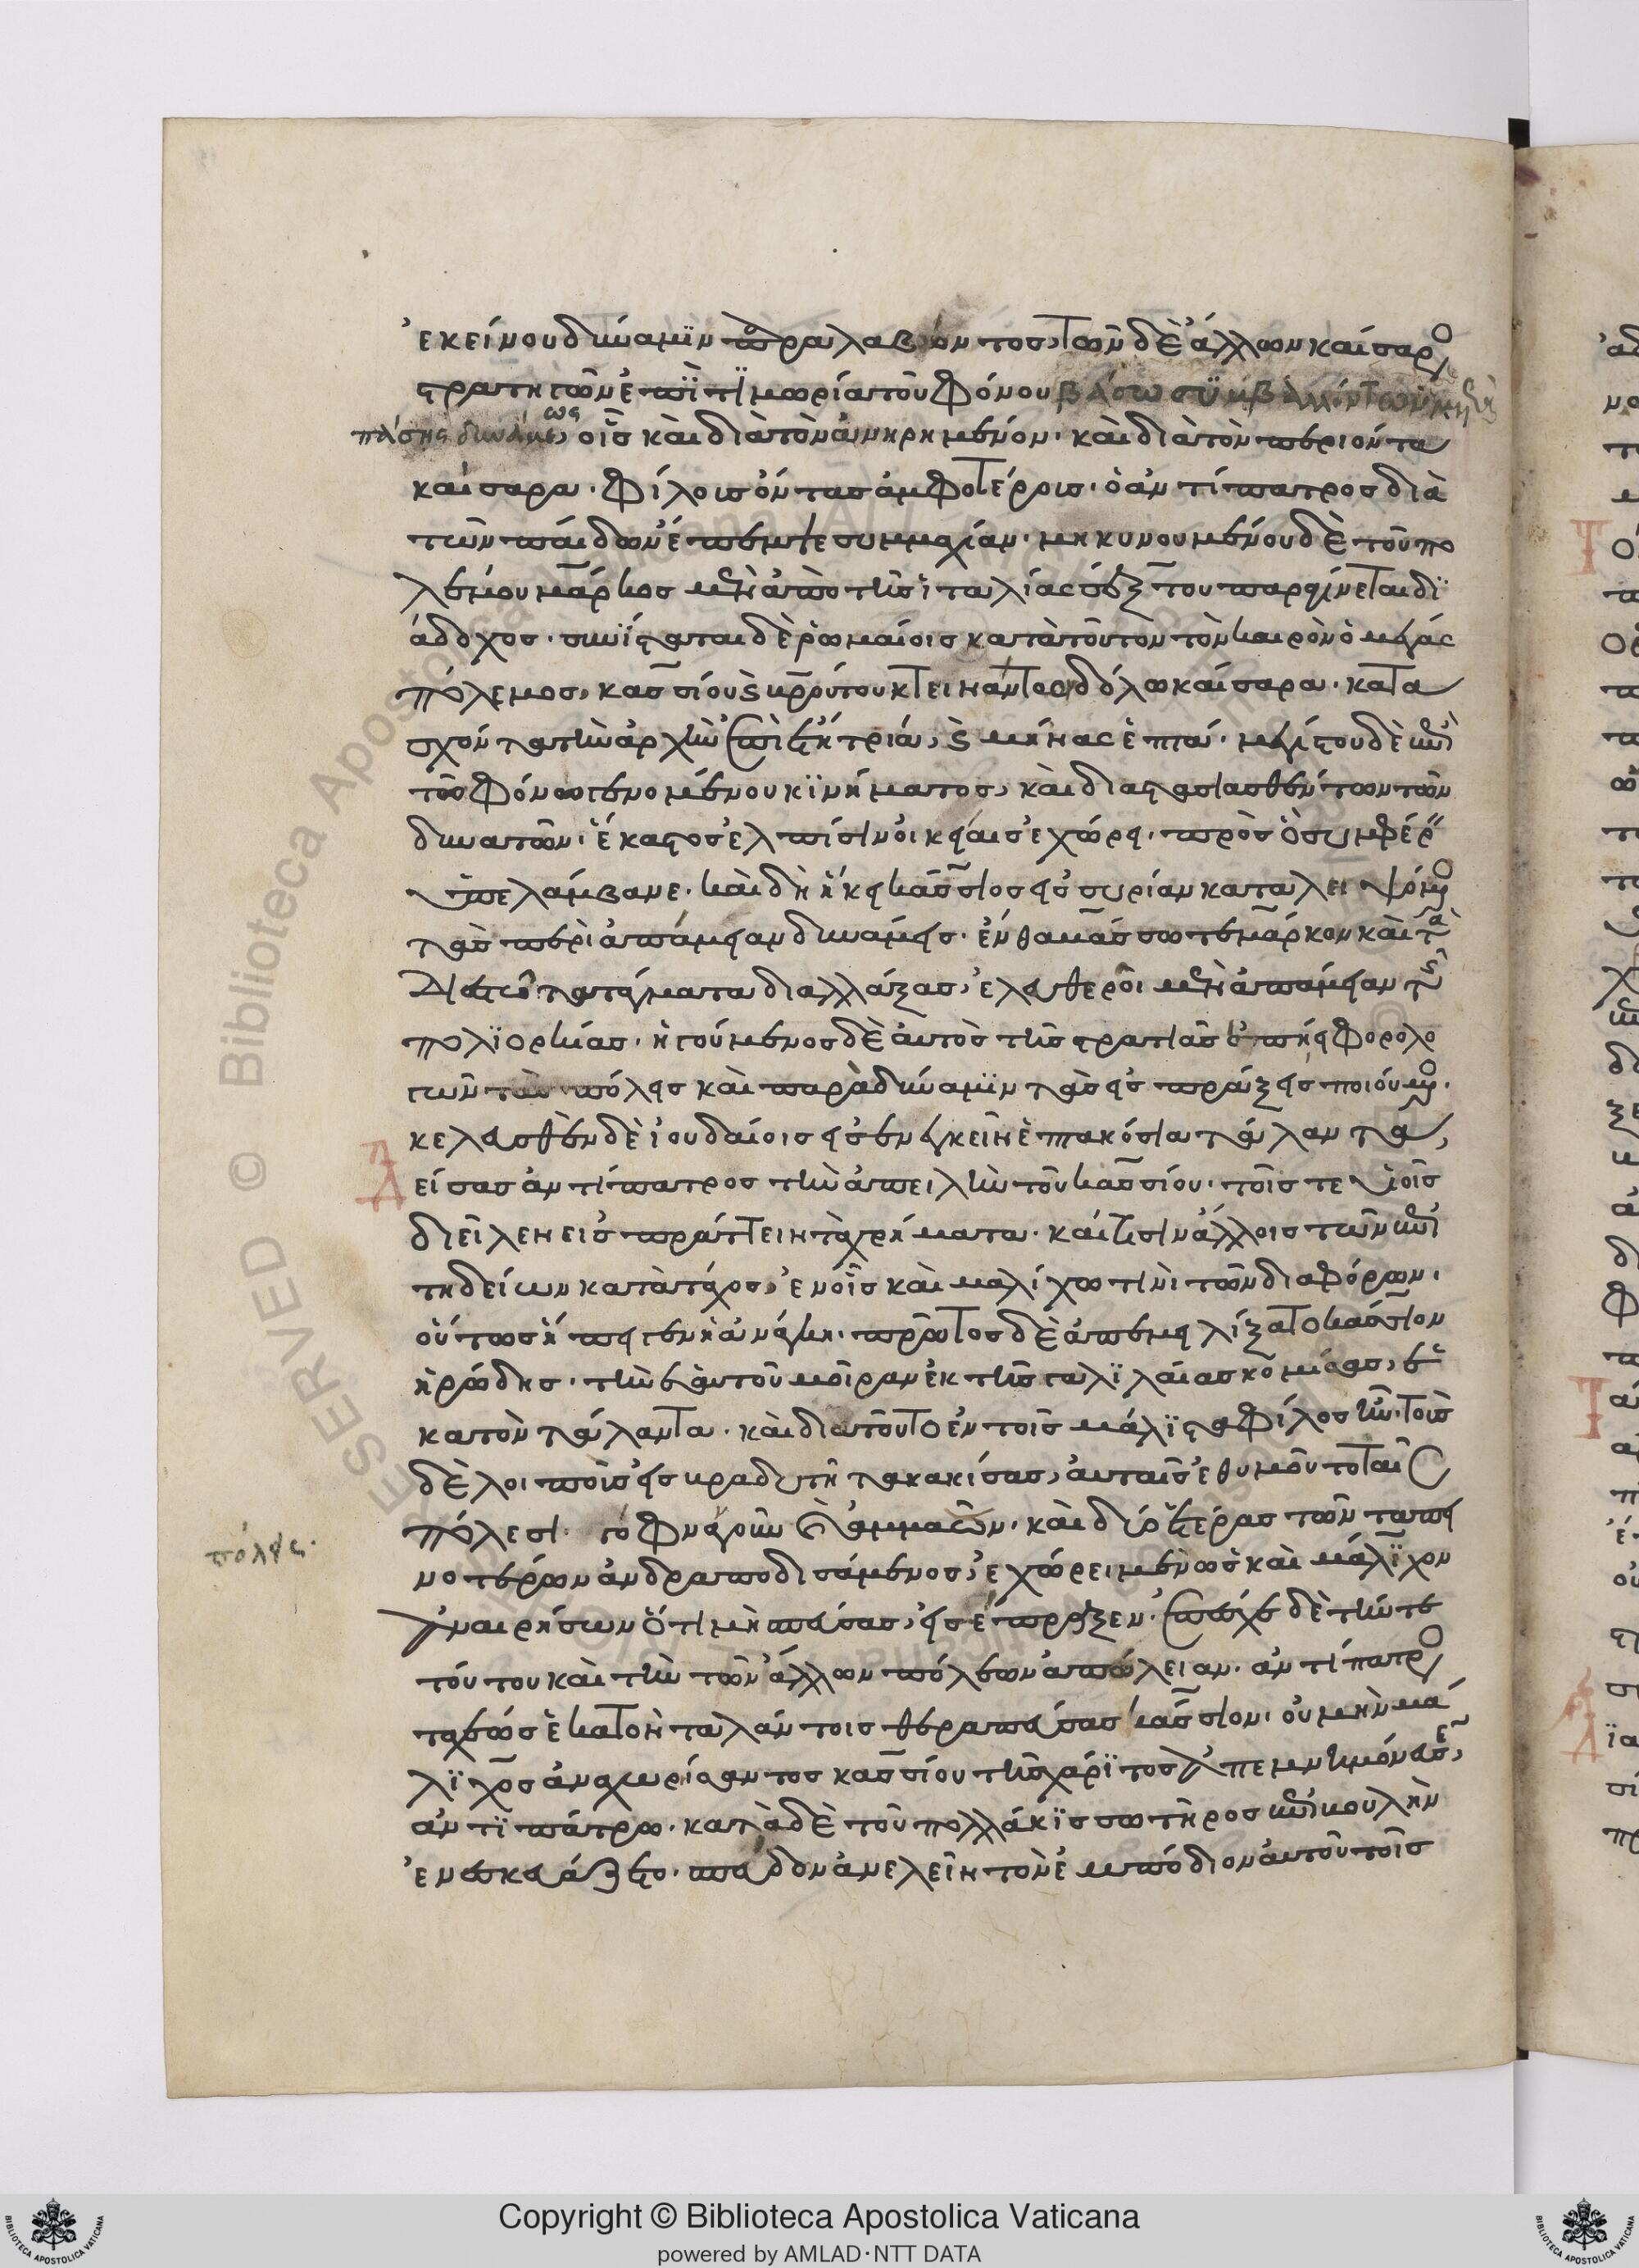 ἐκείνου δύναμϊν παραλαβόντος, τῶν δὲ ἄλλων καίσαρος
στρατηγῶν ἐπὶ τϊμωρία τοῦ φόνου βάσσω συμβαλόντων μετὰ
πάσης δυνάμεως οἷς καὶ διὰ τὸν ἀνηρημένον. καὶ διὰ τὸν περιόντα
καίσαρα. φίλοις ὄντας ἀμφοτέροις. ὁ ἀντίπατρος διὰ
τῶν παίδων ἔπεμψε συμμαχίαν. μηκυνουμένου δὲ τοῦ πο
λέμου μᾶρκος μὲν ἀπὸ τῆς ἰταλίας σέξτου παραγίνεται δϊ
άδοχος. συνίσταται δὲ ῥωμαίοις κατὰ τοῦτον τὸν καιρὸν ὁ μέγας
πόλεμος, κασσίου καὶ βρούτου κτεινάντων δόλω καίσαρα. κατα
σχόντα τὴν ἀρχὴν ἐπὶ ἔτη τρία, καὶ μῆνας ἑπτά. μεγίστου δὲ ἐπὶ
τῶ φόνω γενομένου κϊνήματος, καὶ διαστασιασθέντων τῶν
δυνατῶν. ἕκαστος ἐλπίσιν οἰκείαις ἐχώρει. πρὸς ὃ συμφέρειν
ὑπελάμβανε. καὶ δὴ ἥκει κάσσιος εἰς συρίαν καταλειψόμενος
τὰς περὶ ἀπάμειαν δυνάμεις. ἔνθα μάσσω τε μᾶρκον καὶ τὰ
διεστῶτα τάγματα διαλλάξας, ἐλευθεροῖ μὲν ἀπάμειαν τῆς
πολϊορκίας. ἡγούμενος δὲ αὐτὸς τῆς στρατιᾶς ἐπήει φορολο
γῶν τὰς πόλεις καὶ παρὰ δύναμϊν τὰς εἰσπράξεις ποιούμενος.
κελευσθὲν δὲ ἰουδαίοις εἰσενεγκεῖν ἑπτακόσια τάλαντα,
Δείσας ἀντίπατρος τὴν ἀπειλὴν τοῦ κασσίου. τοῖς τε υἱοῖς
διεῖλεν εἰσπράττειν τὰ χρήματα. καί τισιν ἄλλοις τῶν ἐπι
τηδείων κατὰ τάχος, ἐν οἷς καὶ μαλίχω τινὶ τῶν διαφόρων.
οὕτως ἤπειγεν ἡ ἀνάγκη. πρῶτος δὲ ἀπεμειλίξατο κάσσιον
ἡρώδης. τὴν ἑαυτοῦ μοῖραν ἐκ τῆς γαλϊλαίας κομίσας, ἑ
κατὸν τάλαντα. καὶ διὰ τοῦτο ἐν τοῖς μάλϊστα φίλος ἦν. τοὺς
δὲ λοιποὺς εἰς βραδυτῆτα κακίσας, αὐταῖς ἐθυμοῦτο ταῖς
πόλεσι. γόφνα γοῦν καὶ ἀμμαοῦν. καὶ δύο ἑτέρας τῶν ταπει
πόλεις.
νοτέρων ἀνδραποδισάμενος, ἐχώρει μὲν ὡς καὶ μάλϊχον
ἀναιρήσων ὅτι μὴ σπεύσας, εἰσέπραξεν. ἐπέσχε δὲ τήν τε
τούτου καὶ τὴν τῶν ἄλλων πόλεων ἀπώλειαν. ἀντίπατρος
ταχέως ἑκατὸν ταλάντοις θεραπεύσας κάσσιον. οὐ μὴν μά
λϊχος ἀναχωρήσαντος κασσίου τῆς χάρϊτος ἀπεμνημόνευσεν,
ἀντϊπάτρω. κατὰ δὲ τοῦ πολλάκϊς σωτῆρος ἐπιβουλὴν
ἐνεσκευάζετο. σπεύδων ἀνελεῖν τὸν ἐμπόδιον αὐτοῦ τοῖς
Copyright © Biblioteca Apostolica Vaticana
powered by AMLAD·NTT DATA